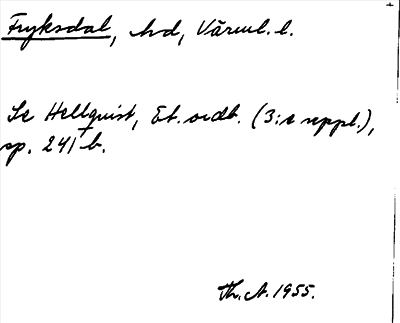 Fryksdal, hd, Värml. l.
Se Hellquist, Et. ordb. (3:e uppl.),
sp. 241 b.
Th. A. 1955.